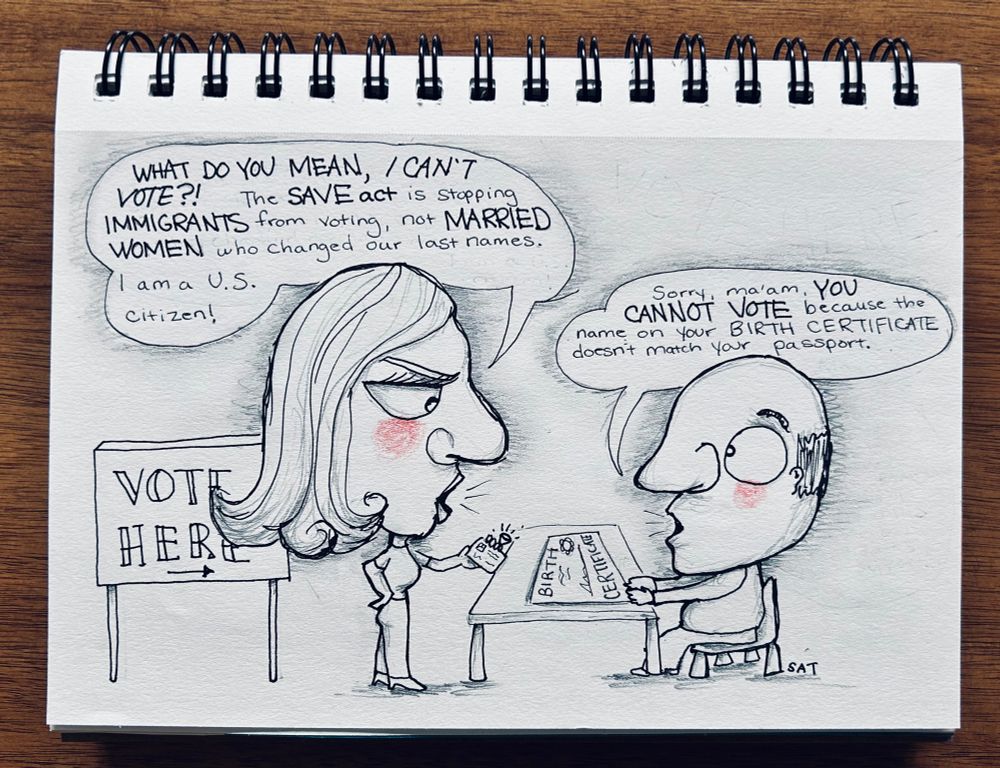 WHAT DO YOU MEAN, I CAN'T
VOTE?! The SAVE act is stopping
IMMIGRANTS from voting, not MARRIED
WOMEN who changed our last names.
I am a U.S.
citizen!
Sorry, ma'am, YOU
CANNOT VOTE because the
name on your BIRTH CERTIFICATE
doesn't match your passport.
VOTE
HERE
BIRTH
CERTIFICATE
SAT